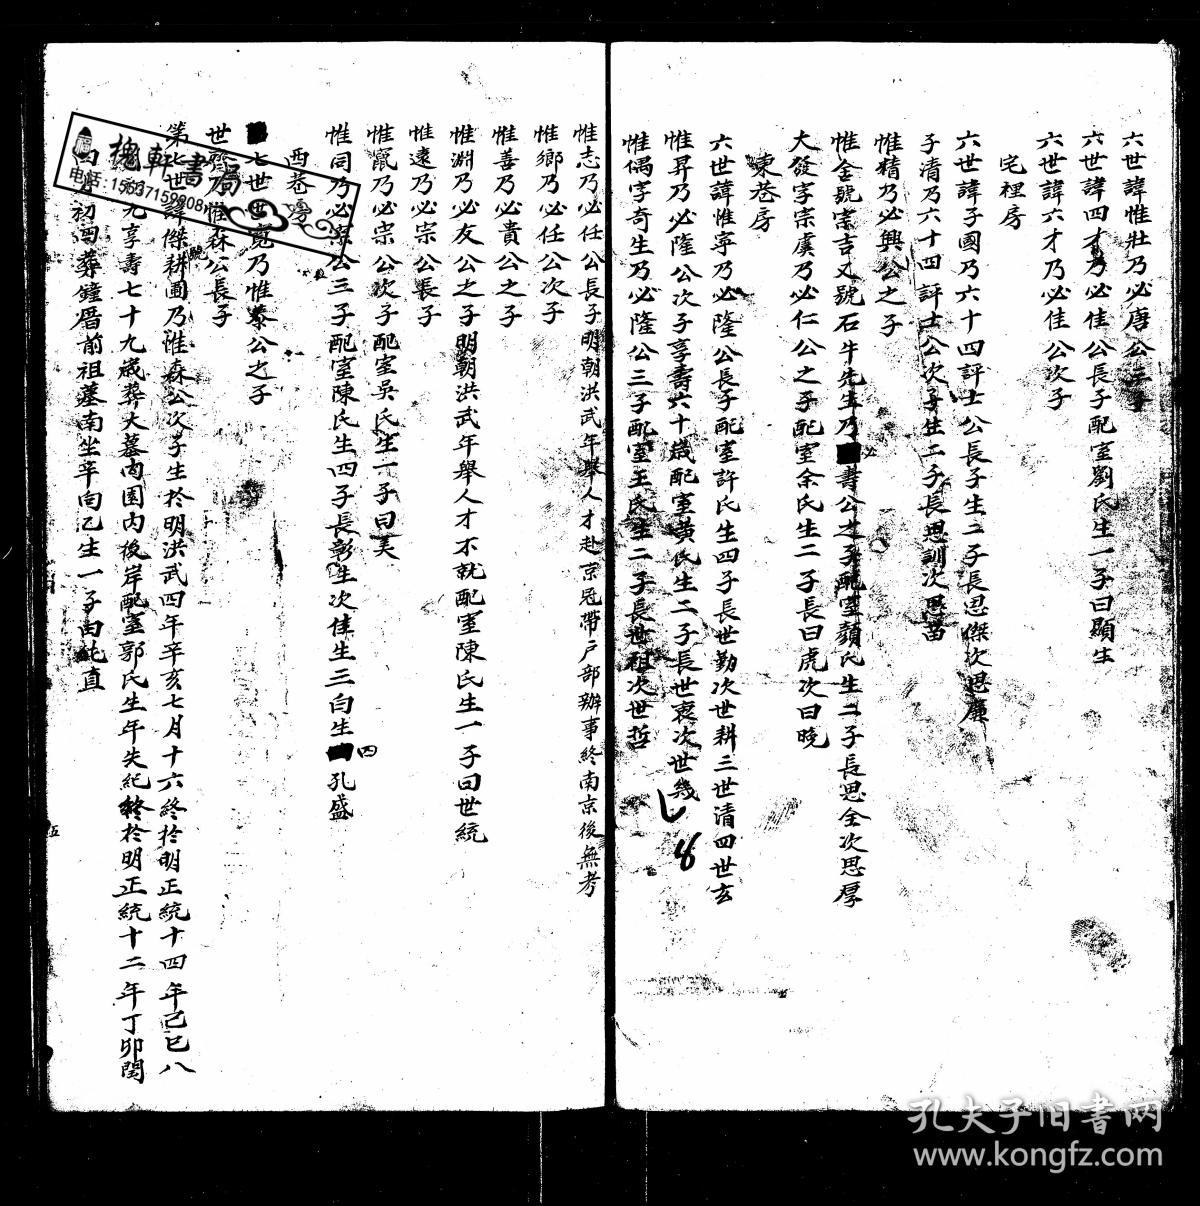 六世諱惟壯乃必唐公三子
六世諱四才乃必佳公長子配室劉氏生一子曰顯生
六世諱六才乃必佳公次子
宅裡房
六世諱子國乃六十四評士公長子生二子長思傑次思廉
子清乃六十四評士公次子生二子長思訓次思苗
惟精乃必興公之子
惟金號宗吉又號石牛先生乃書公之子配室顏氏生二子長思全次思厚
大發字宗虞乃必仁公之子配室余氏生二子長曰虎次曰曉
東巷房
六世諱惟寧乃必隆公長子配室許氏生四子長世勤次世耕三世清四世玄
惟昇乃必隆公次子享壽六十歲配室黃氏生二子長世衷次世幾
惟偶字奇生乃必隆公三子配室王氏生二子長世祖次世哲
惟志乃必任公長子明朝洪武年舉人才赴京冠帶戶部辦事終南京後無考
惟鄉乃必任公次子
惟善乃必貴公之子
惟淵乃必友公之子明朝洪武年舉人才不就配室陳氏生一子曰世統
惟遠乃必宗公長子
惟寵乃必宗公次子配室吳氏生一子曰美
惟同乃必公三子配室陳氏生四子長彰生次佳生三白生四孔盛
西巷房
七世世寬乃惟泰公之子
世齊乃惟森公長子
第七世諱傑耕圃乃惟森公次子生於明洪武四年辛亥七月十六終於明正統十四年己巳八
九享壽七十九歲葬大墓內園內後岸配室郭氏生年失紀終於明正統十二年丁卯閏
初四葬鐘厝前祖墓南坐辛向乙生一子曰純直
五
8
槐軒書局
电话:15637159908
孔夫子旧书网
www.kongfz.com